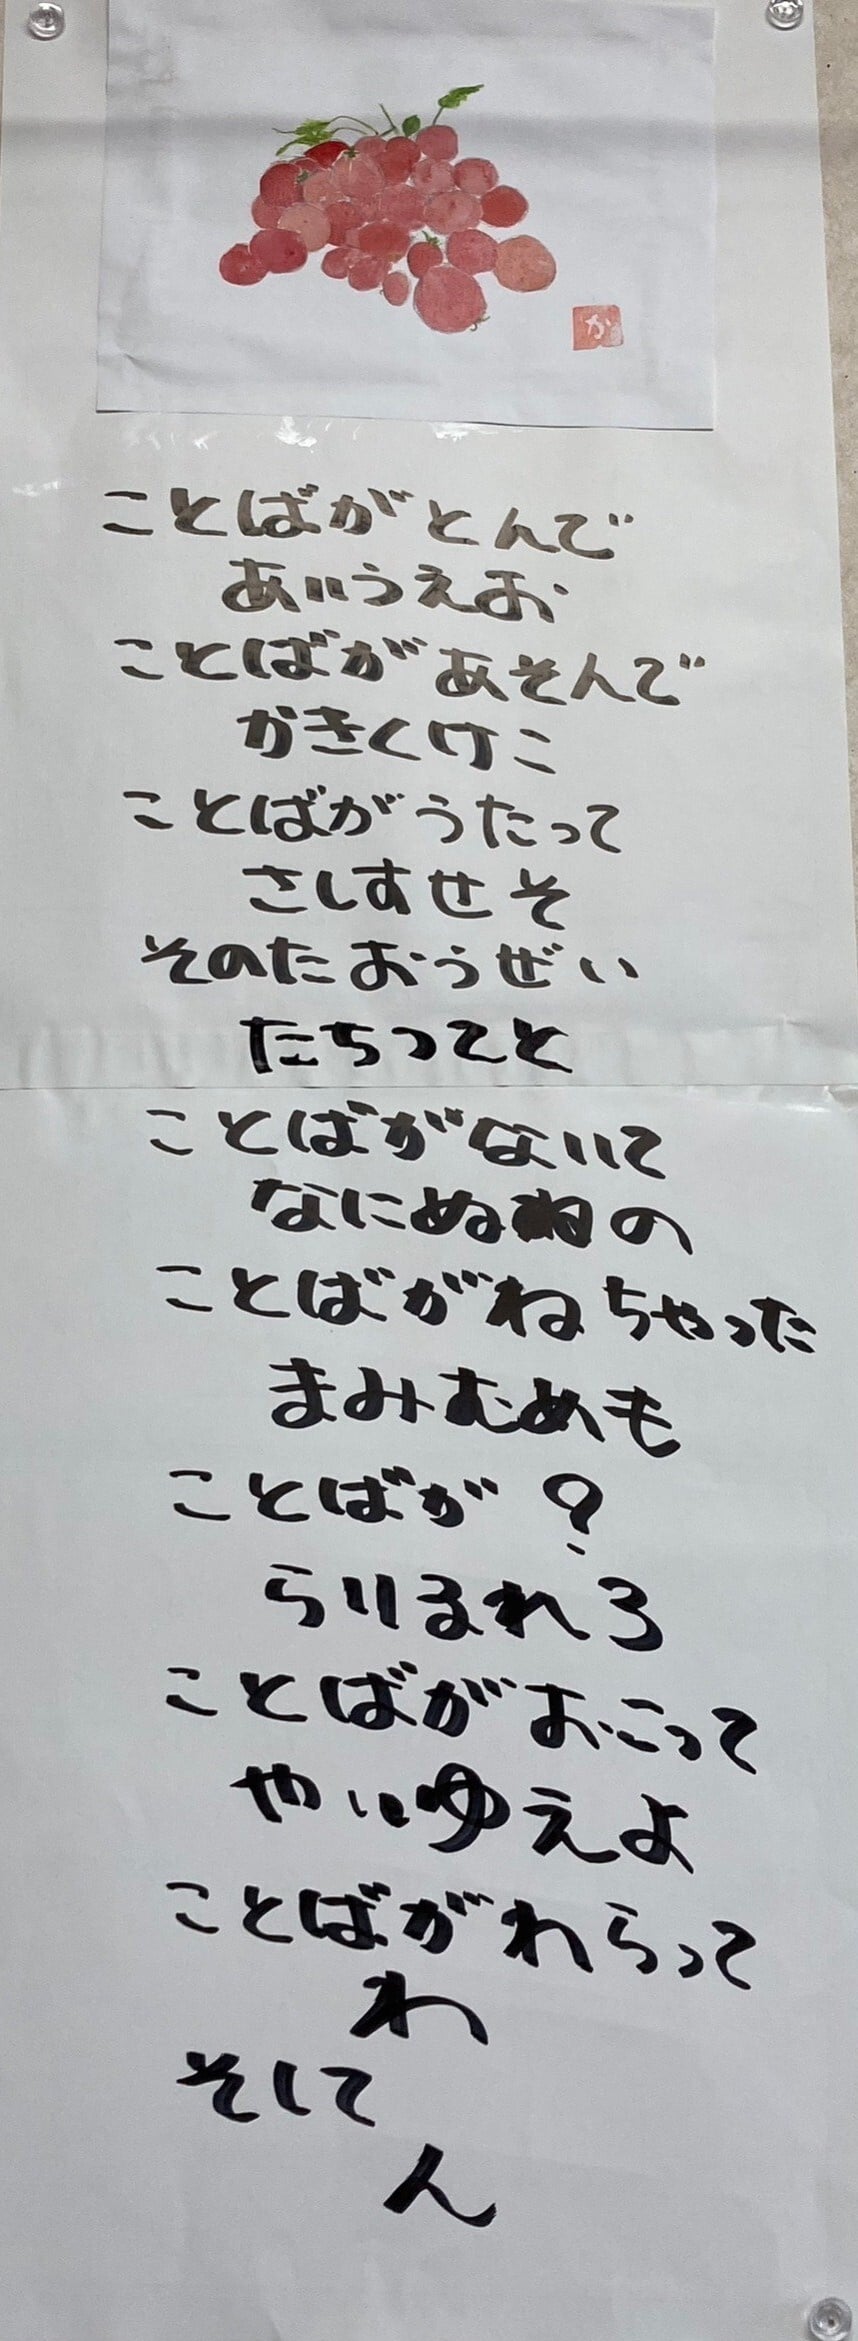 か
ことばがとんで
あいうえお
ことばがあそんで
かきくけこ
ことばがうたって
さしすせそ
そのたおうぜい
たちつてと
ことばがないて
なにぬねの
ことばがねちゃった
まみむめも
ことばが?
らりるれろ
ことばがおこって
やいゆえよ
ことばがわらって
わ
そして
ん